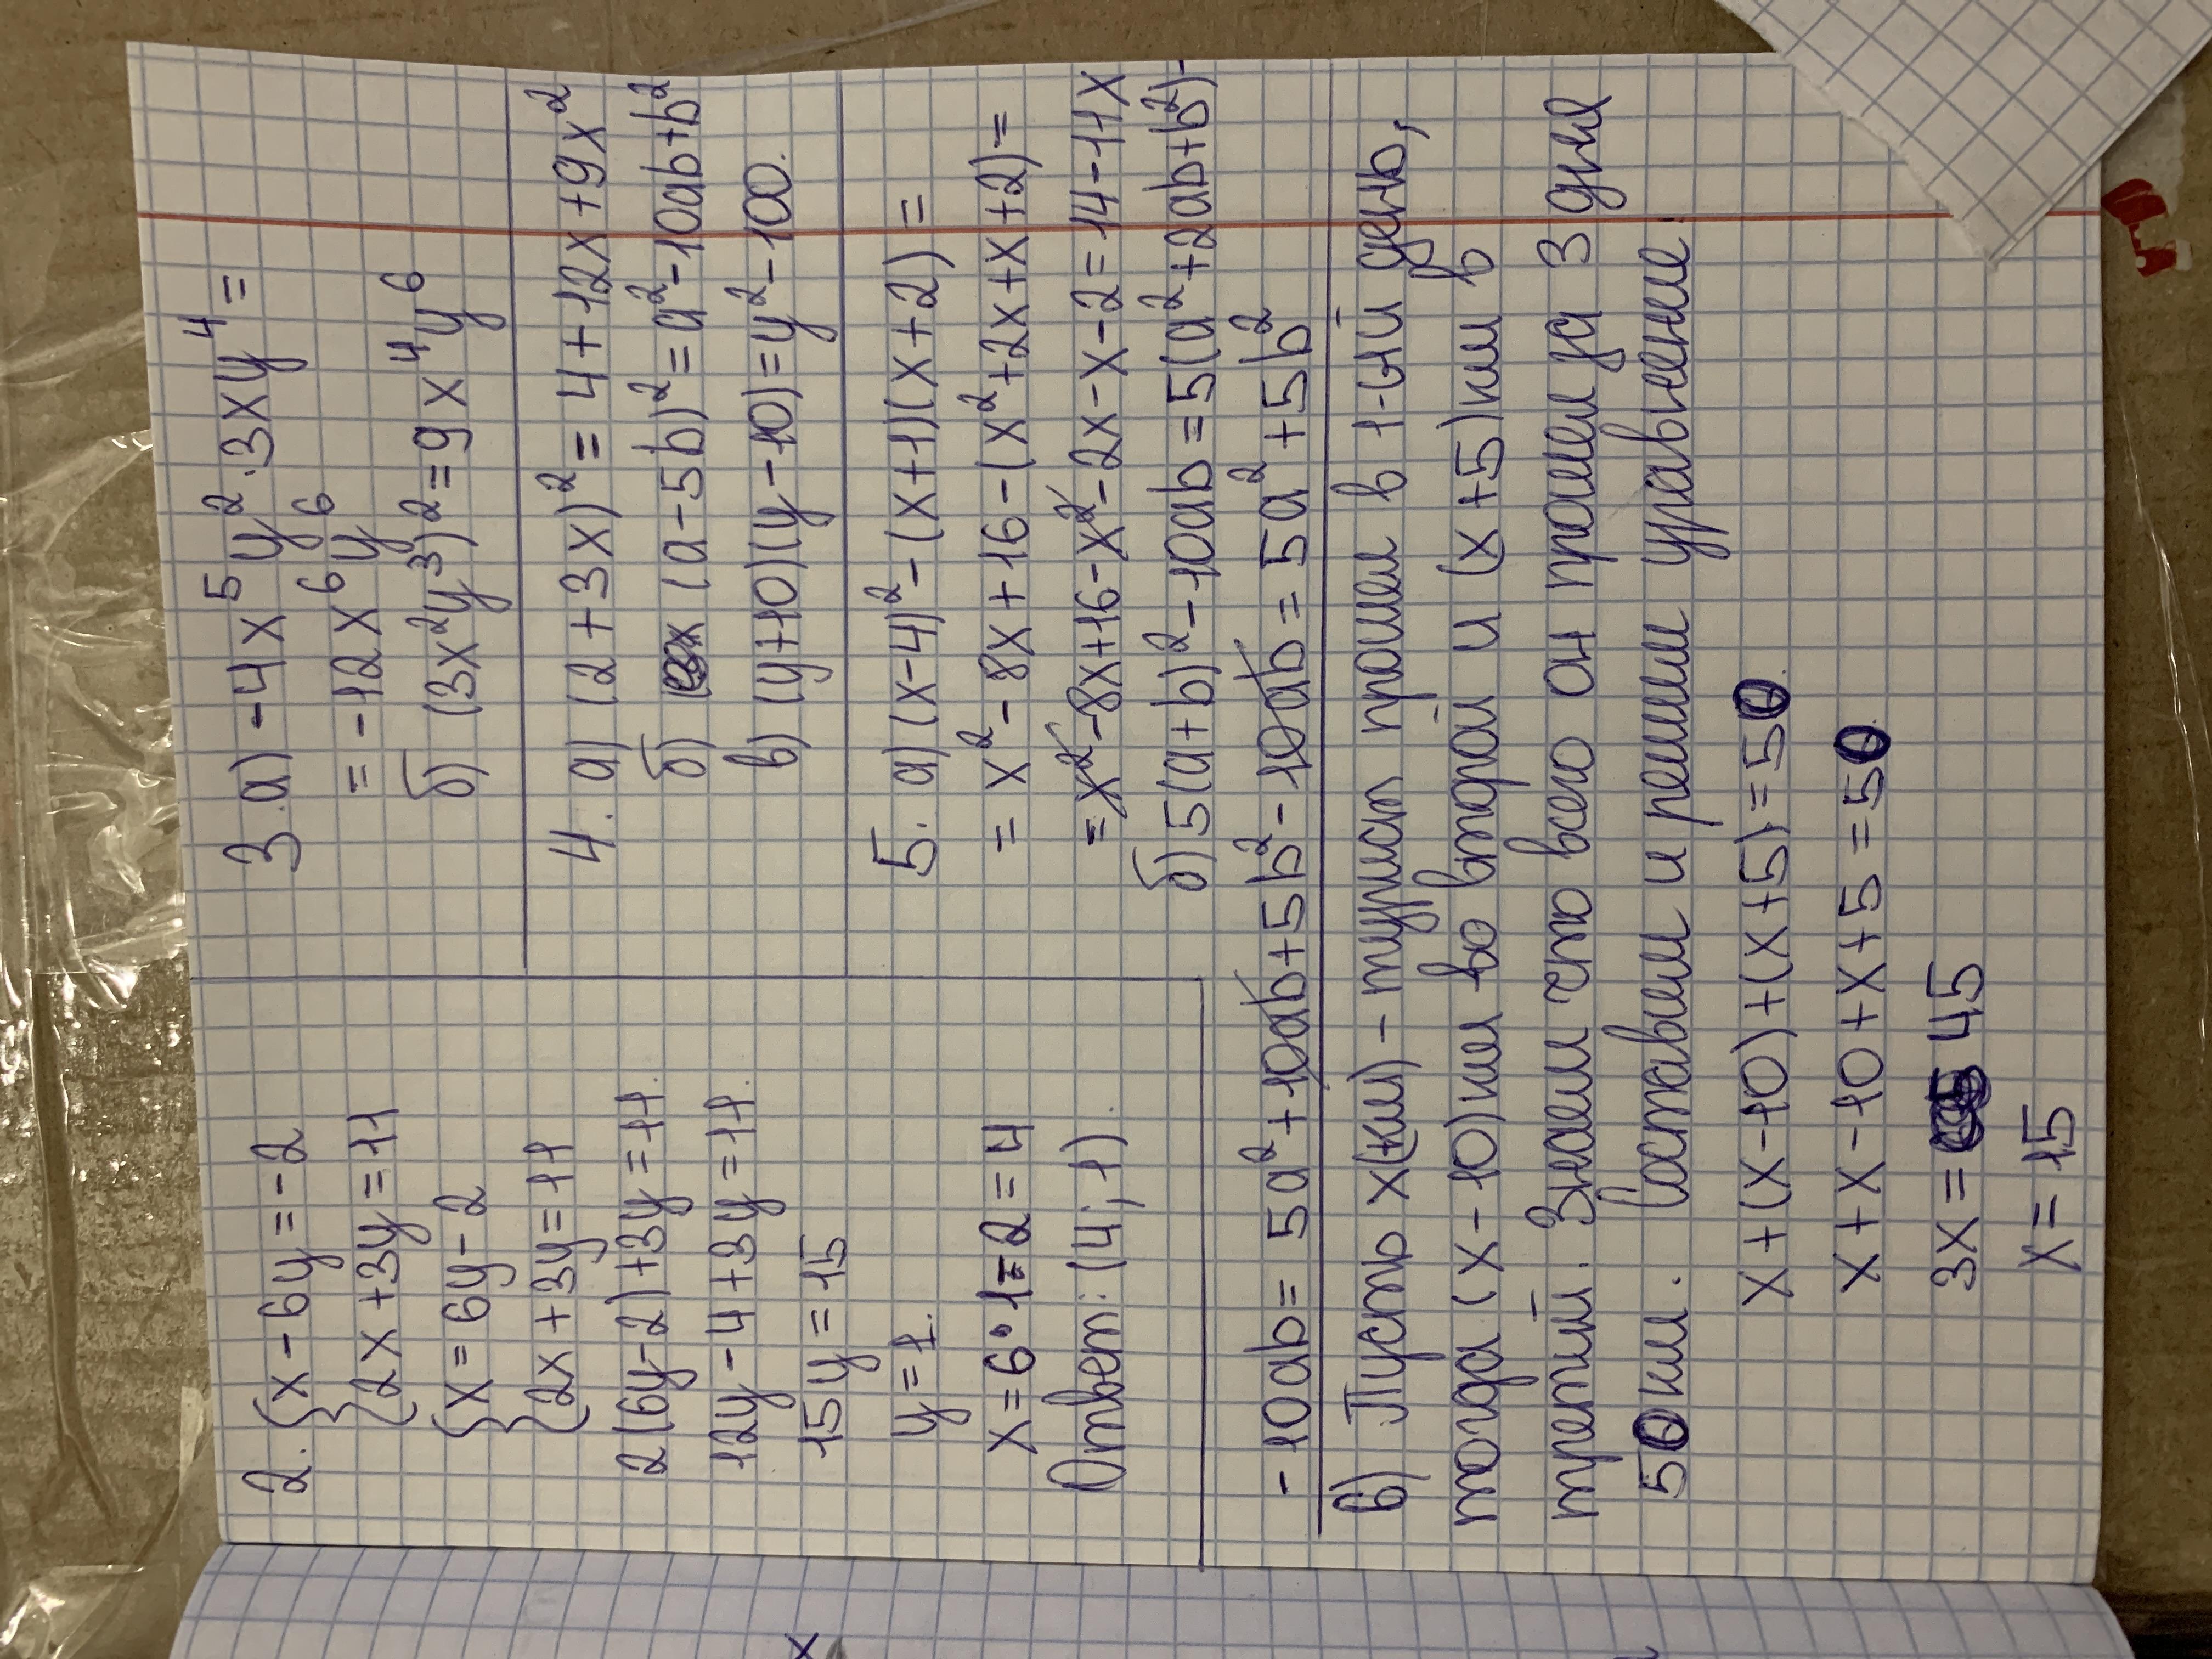 2. { x - 6y = -2
{ 2x + 3y = 11
{ x = 6y - 2
{ 2x + 3y = 11
2(6y-2)+3y = 11.
12y - 4 + 3y = 11.
15y = 15
y = 1.
x = 6 • 1 - 2 = 4
Ответ: (4; 1).
3. а) -4x⁵y² · 3xy⁴ =
= -12x⁶y⁶
б) (3x²y³)² = 9x⁴y⁶
4. а) (2+3x)² = 4+12x+9x²
б) (a-5b)² = a²-10ab+b²
в) (y+10)(y-10) = y²-100.
5. а) (x-4)² - (x+1)(x+2) =
= x² - 8x + 16 - (x²+2x+x+2) =
= x² - 8x + 16 - x² - 2x - x - 2 = 14 - 11x
б) 5(a+b)² - 10ab = 5(a²+2ab+b²) -
- 10ab = 5a² + 10ab + 5b² - 10ab = 5a² + 5b²
6) Пусть x(км) - турист прошел в 1-ый день,
тогда (x-10)км во второй и (x+5)км в
третий. Знаем что всего он прошел за 3 дня
50км. Составим и решим уравнение.
x+(x-10)+(x+5)=50.
x+x-10+x+5=50.
3x = 45
x = 15
x